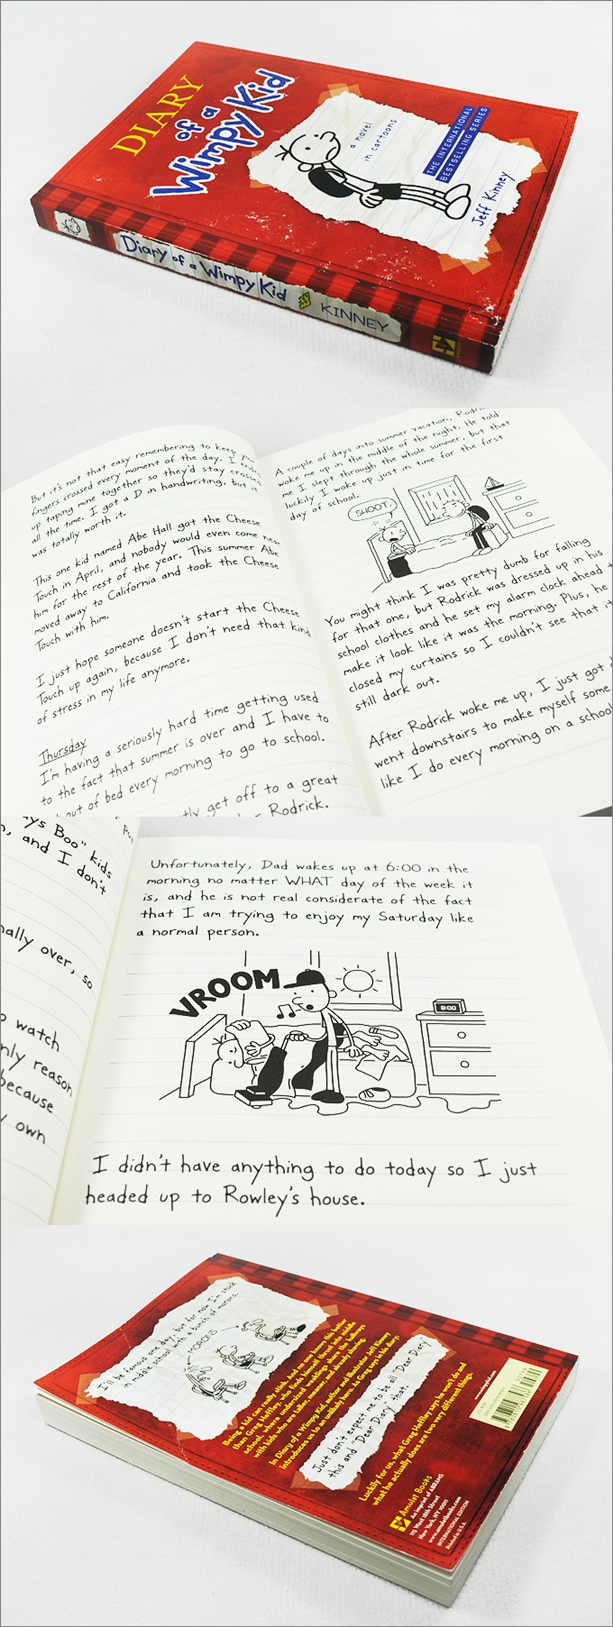 DIARY
of a
Wimpy Kid
a novel
in cartoons
THE INTERNATIONAL
BESTSELLING SERIES
Jeff Kinney
Diary of a Wimpy Kid
KINNEY
But it's not that easy remembering to keep
fingers crossed every moment of the day. I
up taping mine together so they'd stay crossed
all the time. I got a D in handwriting, but it
was totally worth it.
This one kid named Abe Hall got the Cheese
Touch in April, and nobody would even come near
him for the rest of the year. This summer Abe
moved away to California and took the Cheese
Touch with him.
I just hope someone doesn't start the Cheese
Touch up again, because I don't need that kind
of stress in my life anymore.
Thursday
I'm having a seriously hard time getting used
to the fact that summer is over and I have to
out of bed every morning to go to school.
tly get off to a great
Rodrick.
A couple of days into summer vacation, Rodric
woke me up in the middle of the night. He told
me I slept through the whole summer, but that
luckily I woke up just in time for the first
day of school.
SHOOT.
You might think I was pretty dumb for falling
for that one, but Rodrick was dressed up in his
school clothes and he set my alarm clock ahead
make it look like it was the morning. Plus, he
closed my curtains so I couldn't see that it
still dark out.
After Rodrick woke me up, I just got
went downstairs to make myself some
like I do every morning on a school
ys Boo" kids
, and I don't
nally over, so
watch
nly reason
because
own
Unfortunately, Dad wakes up at 6:00 in the
morning no matter WHAT day of the week it
is, and he is not real considerate of the fact
that I am trying to enjoy my Saturday like
a normal person.
VROOM
8:00
I didn't have anything to do today so I just
headed up to Rowley's house.
I'll be famous one day, but for now I'm stuck
in middle school with a bunch of morons.
MORONS
Being a kid can really stink. And no one knows this better
than Greg Heffley, who finds himself thrust into middle
school, where undersized weaklings share the hallways
with kids who are taller, meaner, and already shaving.
In Diary of a Wimpy Kid, author and illustrator Jeff Kinney
introduces us to an unlikely hero. As Greg says in his diary:
Just don't expect me to be all "Dear Diary"
this and "Dear Diary" that.
Luckily for us, what Greg Heffley says he won't do and
what he actually does are two very different things.
Amulet Books
An imprint of ABRAMS
115 West 18th Street
New York, NY 10011
www.amuletbooks.com
INTERNATIONAL EDITION
Printed in U.S.A.